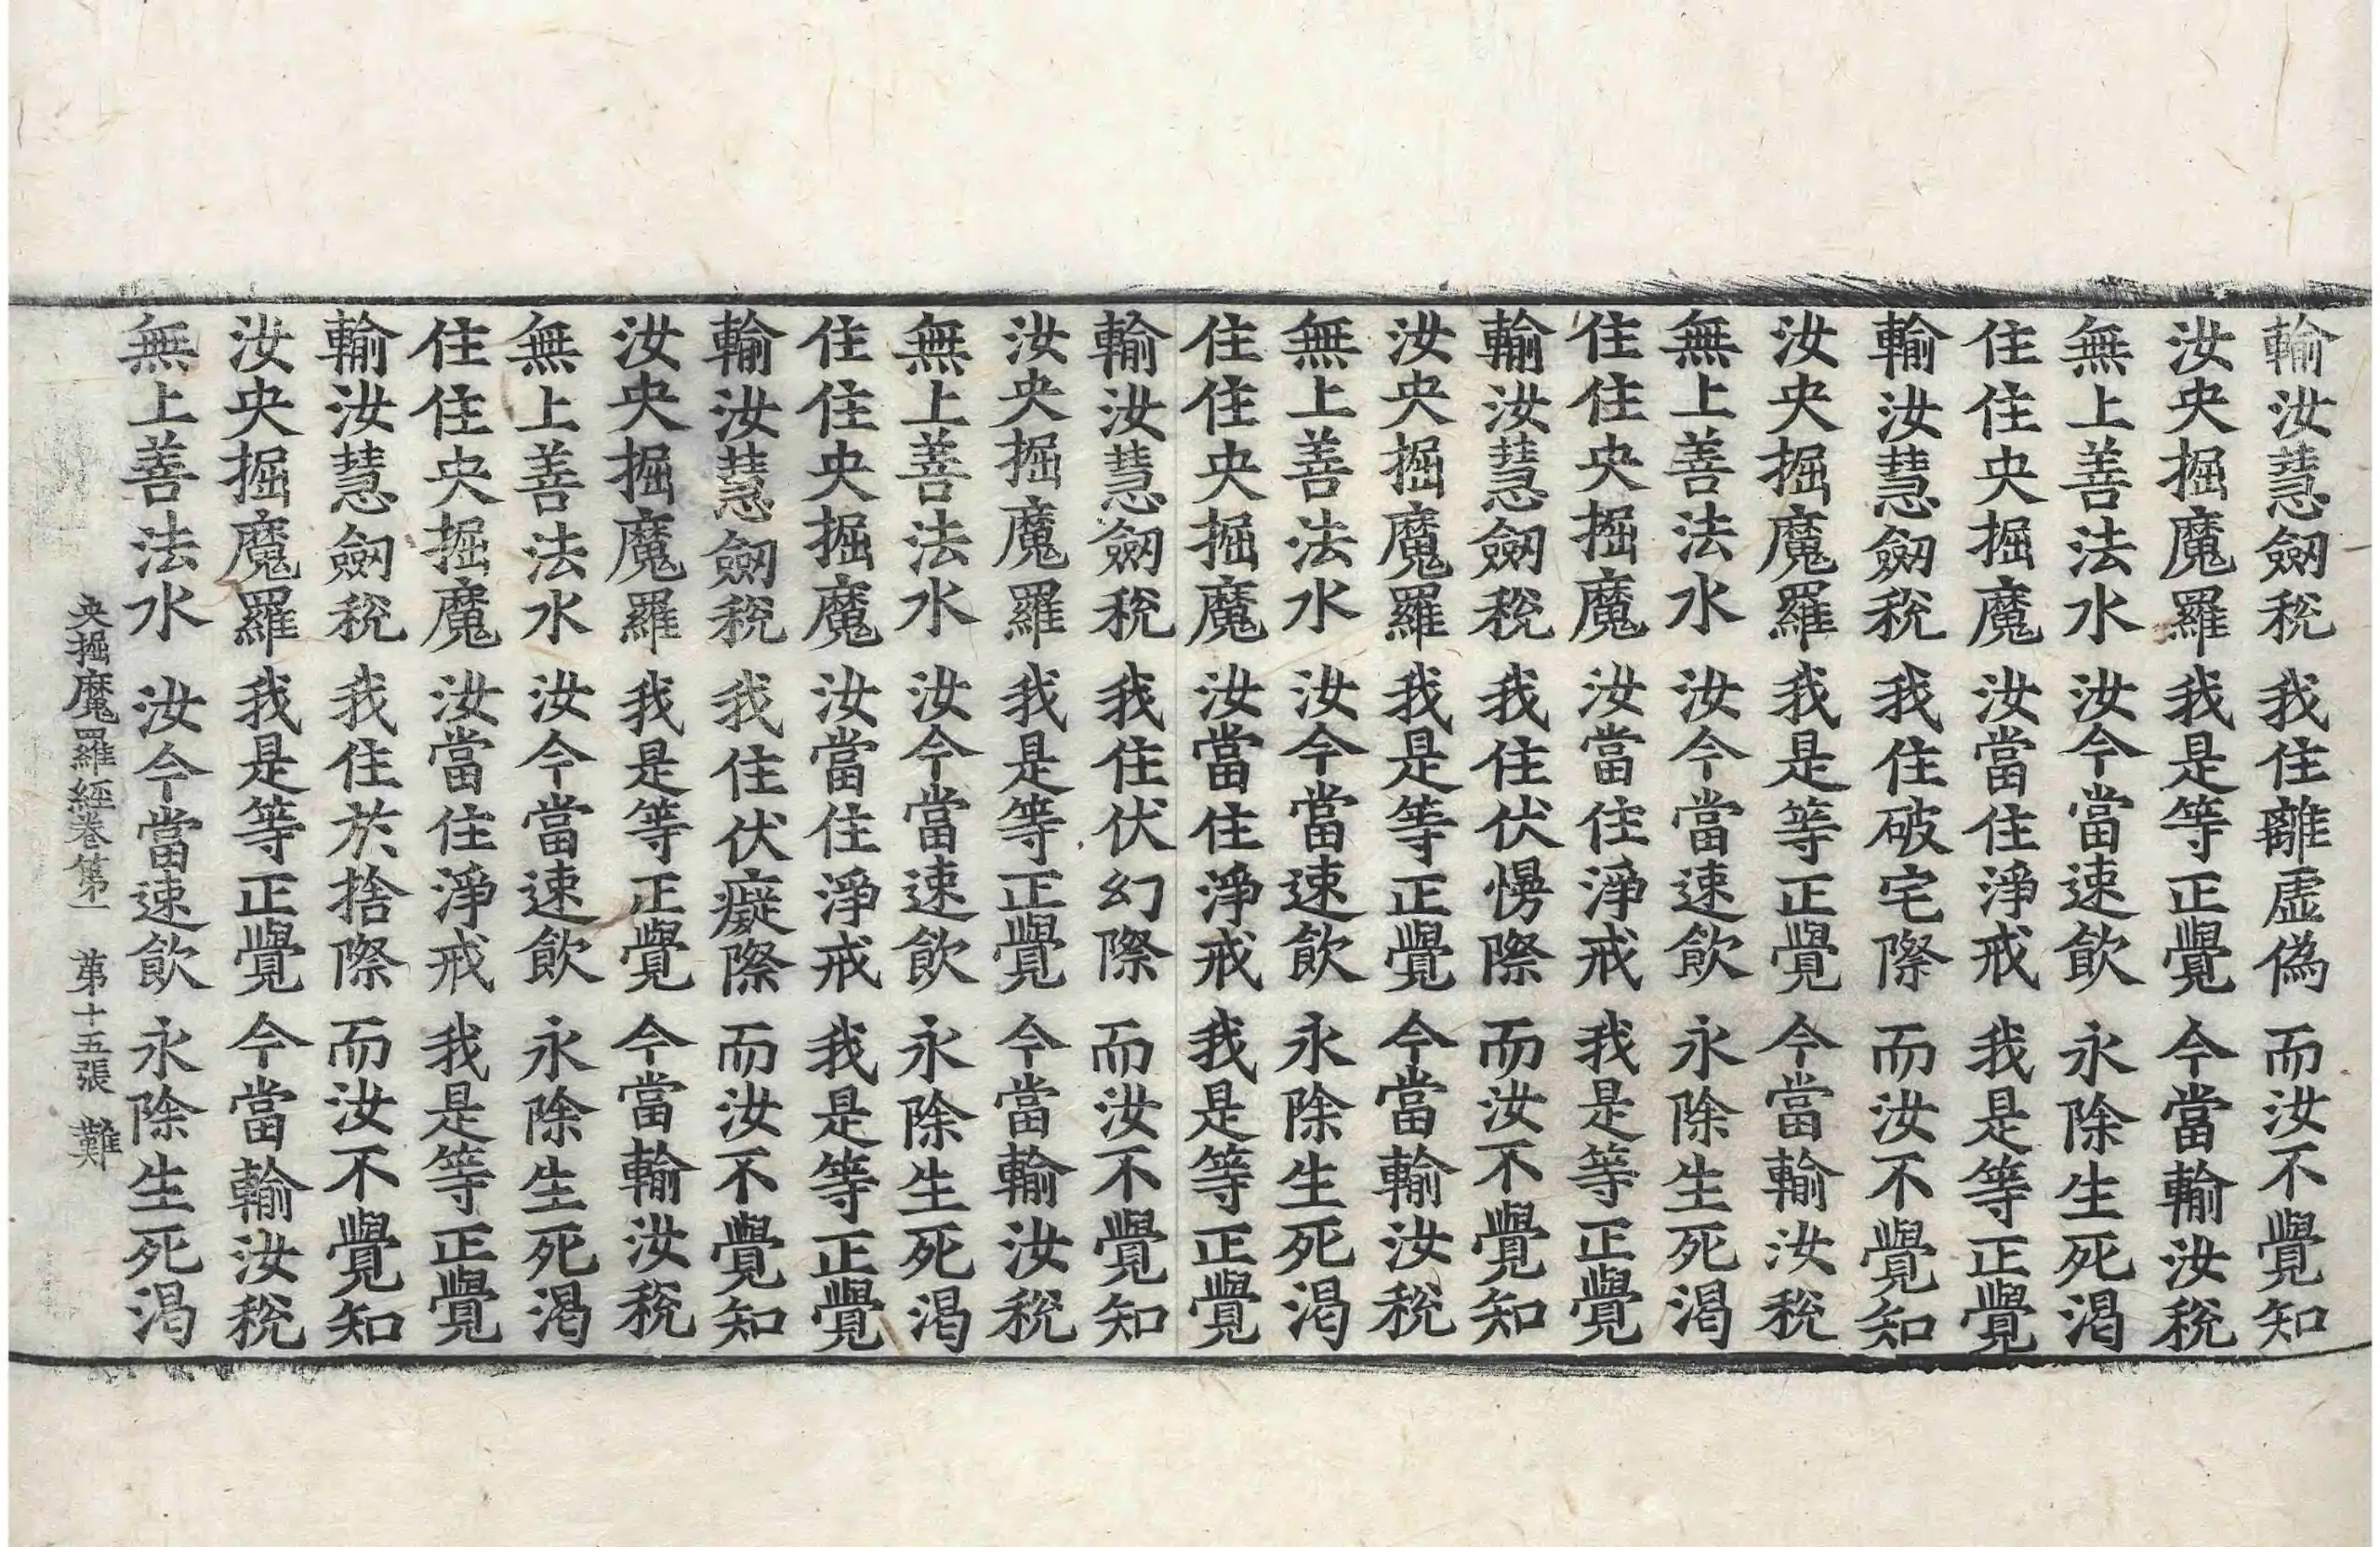 輸汝慧劒稅 我住離虛僞 而汝不覺知
汝央掘魔羅 我是等正覺 今當輸汝稅
無上善法水 汝今當速飮 永除生死渴
住住央掘魔 汝當住淨戒 我是等正覺
輸汝慧劒稅 我住破宅際 而汝不覺知
汝央掘魔羅 我是等正覺 今當輸汝稅
無上善法水 汝今當速飮 永除生死渴
住住央掘魔 汝當住淨戒 我是等正覺
輸汝慧劒稅 我住伏慢際 而汝不覺知
汝央掘魔羅 我是等正覺 今當輸汝稅
無上善法水 汝今當速飮 永除生死渴
住住央掘魔 汝當住淨戒 我是等正覺
輸汝慧劒稅 我住伏幻際 而汝不覺知
汝央掘魔羅 我是等正覺 今當輸汝稅
無上善法水 汝今當速飮 永除生死渴
住住央掘魔 汝當住淨戒 我是等正覺
輸汝慧劒稅 我住伏癡際 而汝不覺知
汝央掘魔羅 我是等正覺 今當輸汝稅
無上善法水 汝今當速飮 永除生死渴
住住央掘魔 汝當住淨戒 我是等正覺
輸汝慧劒稅 我住於捨際 而汝不覺知
汝央掘魔羅 我是等正覺 今當輸汝稅
無上善法水 汝今當速飮 永除生死渴
央掘魔羅經卷第一 第十五張 難